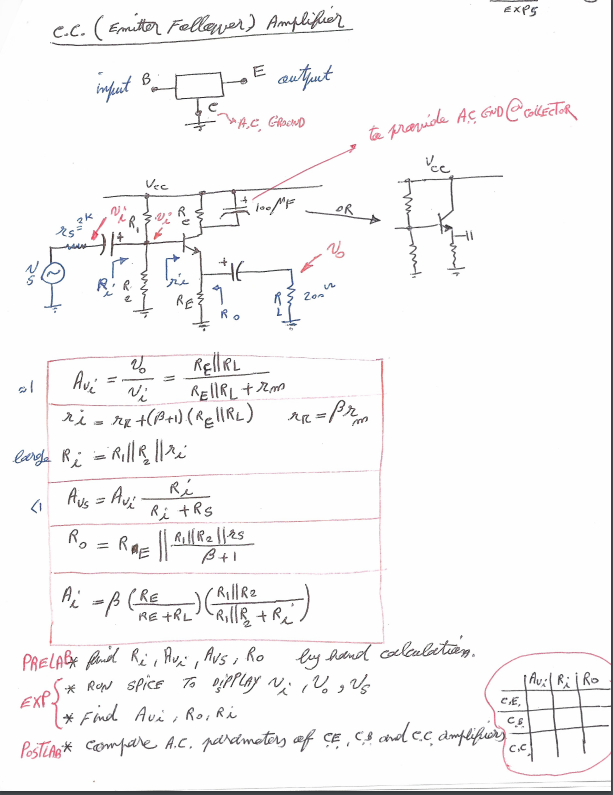 EXP5
C.C. ( Emitter Follower) Amplifier
input B E output
C
A.C. GROUND
to provide A.C. GND @ COLLECTOR
Vcc
Vcc
rs = 2K
vi
R1
vi
Rc
+
100μF
OR
vs
+
Ri
R2
ri
RE
+
Ro
vo
RL
200Ω
≈1 Avi = vo/vi = RE||RL / RE||RL + rm
ri = rπ + (β+1) (RE||RL) rπ = βrm
large Ri = R1||R2||ri
<1 Avs = Avi Ri / Ri + Rs
Ro = RE || R1||R2||rs / β+1
Ai = β (RE / RE + RL) (R1||R2 / R1||R2 + Ri)
PRELAB * find Ri, Avi, Avs, Ro by hand calculation.
EXP { * RUN SPICE TO DISPPLAY vi, vo, vs
* Find Avi, Ro, Ri
POSTLAB * Compare A.C. parameters of CE, C.B and C.C amplifiers
Avi Ri Ro
C.E.
C.B.
C.C.